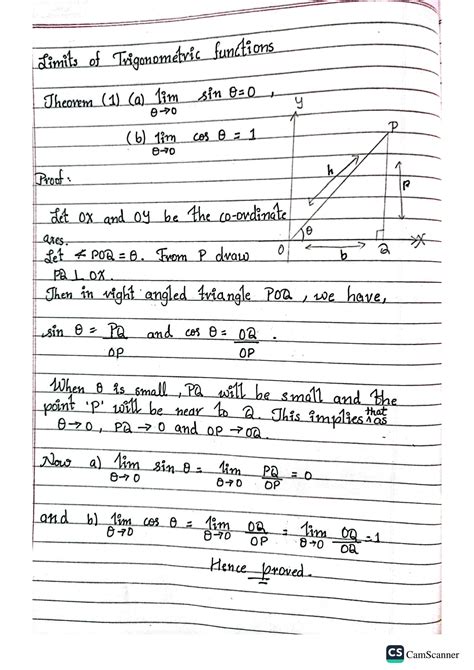 Limits of Trigonometric functions
Theorem (1) (a) lim sin θ=0 ,
θ→0
(b) lim cos θ = 1
θ→0
Y
P
h
p
θ
O
b
Q
X
Proof:
Let OX and OY be the co-ordinate
axes.
Let ∢ POQ = θ. From P draw
PQ ⊥ OX.
Then in right angled triangle POQ, we have,
sin θ = PQ and cos θ = OQ .
OP OP
When θ is small, PQ will be small and the
point 'P' will be near to Q. This implies that as
θ→0, PQ → 0 and OP → OQ.
Now a) lim sin θ = lim PQ = 0
θ→0 θ→0 OP
and b) lim cos θ = lim OQ = lim OQ = 1
θ→0 θ→0 OP θ→0 OQ
Hence proved.
CS CamScanner